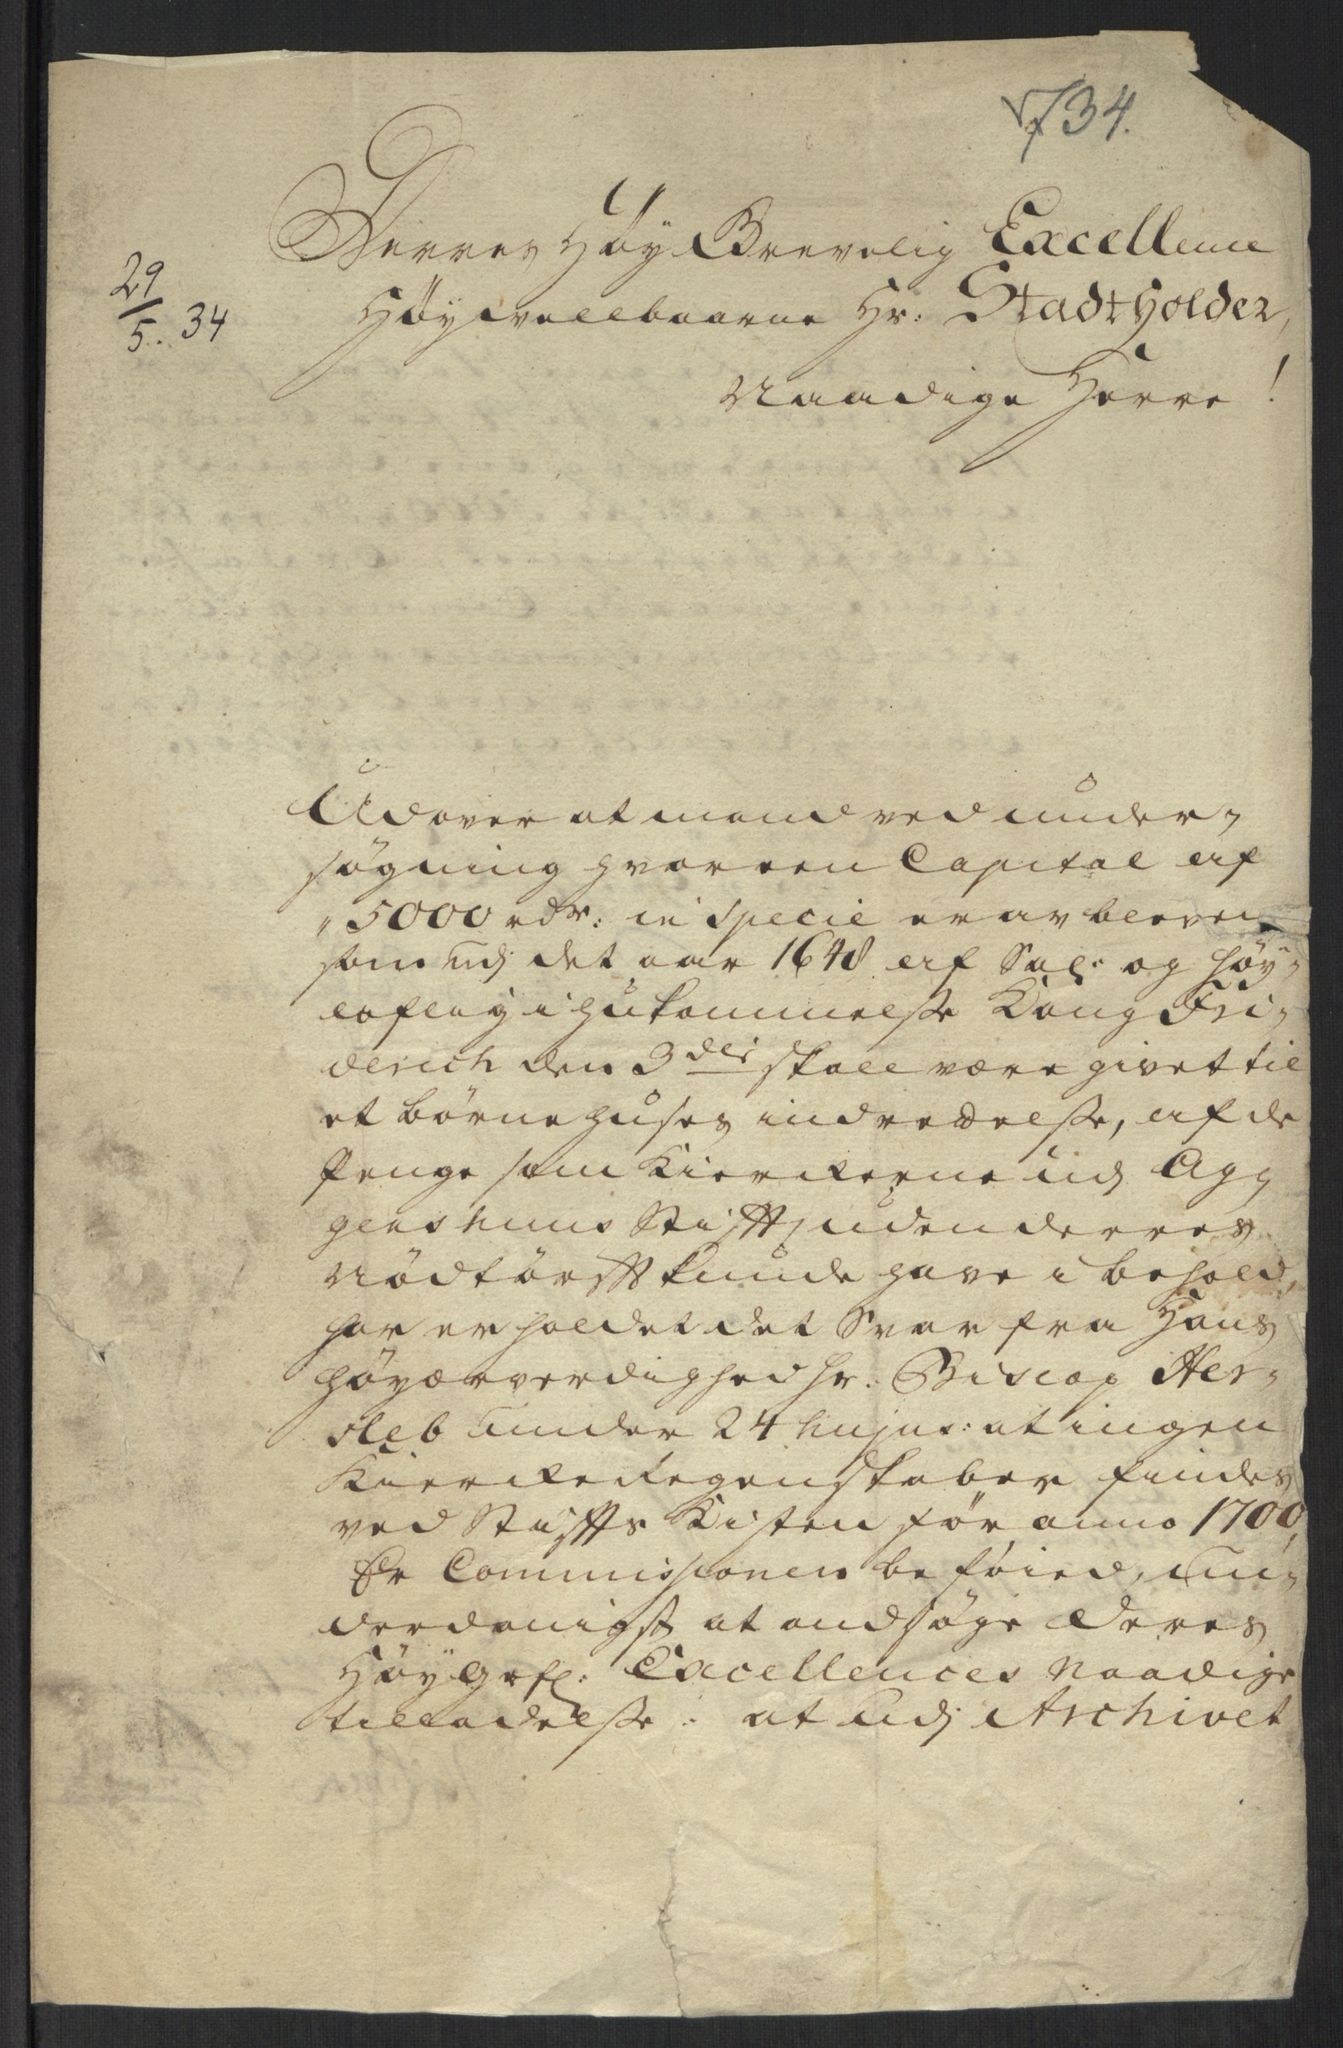 734.
Derres Høy Grevelig Excellence
29/5. 34
Høyvellbaarne Hr: Stadtholder,
Naadige Herre!
Udover at mand ved under,
søgning hvor een Capital af
5000 rdr: in specie er av bleven
som udj det aar 1648 af Sal: og høy,
loflig ihukommelsse Kong Fri,
derich den 3die skall være givet til
et børnehuses indredelsse, af de
penge som Kierckerne udj Ag,
gershuus Stifft uden derres
Nødtørfft kunde have i behold,
har er holdet det Svar fra Hans
høyærverdighed hr. Biscop Her,
sleb under 24 hujus: at ingen
Kiercke Regenskaber findes
ved Stiffts Kisten før anno 1700,
Er Commissionen beføied, un,
derdanigst at andsøge Deres
HøyGrfl: Excellences Naadige
tilladelsse: at udj Archivet